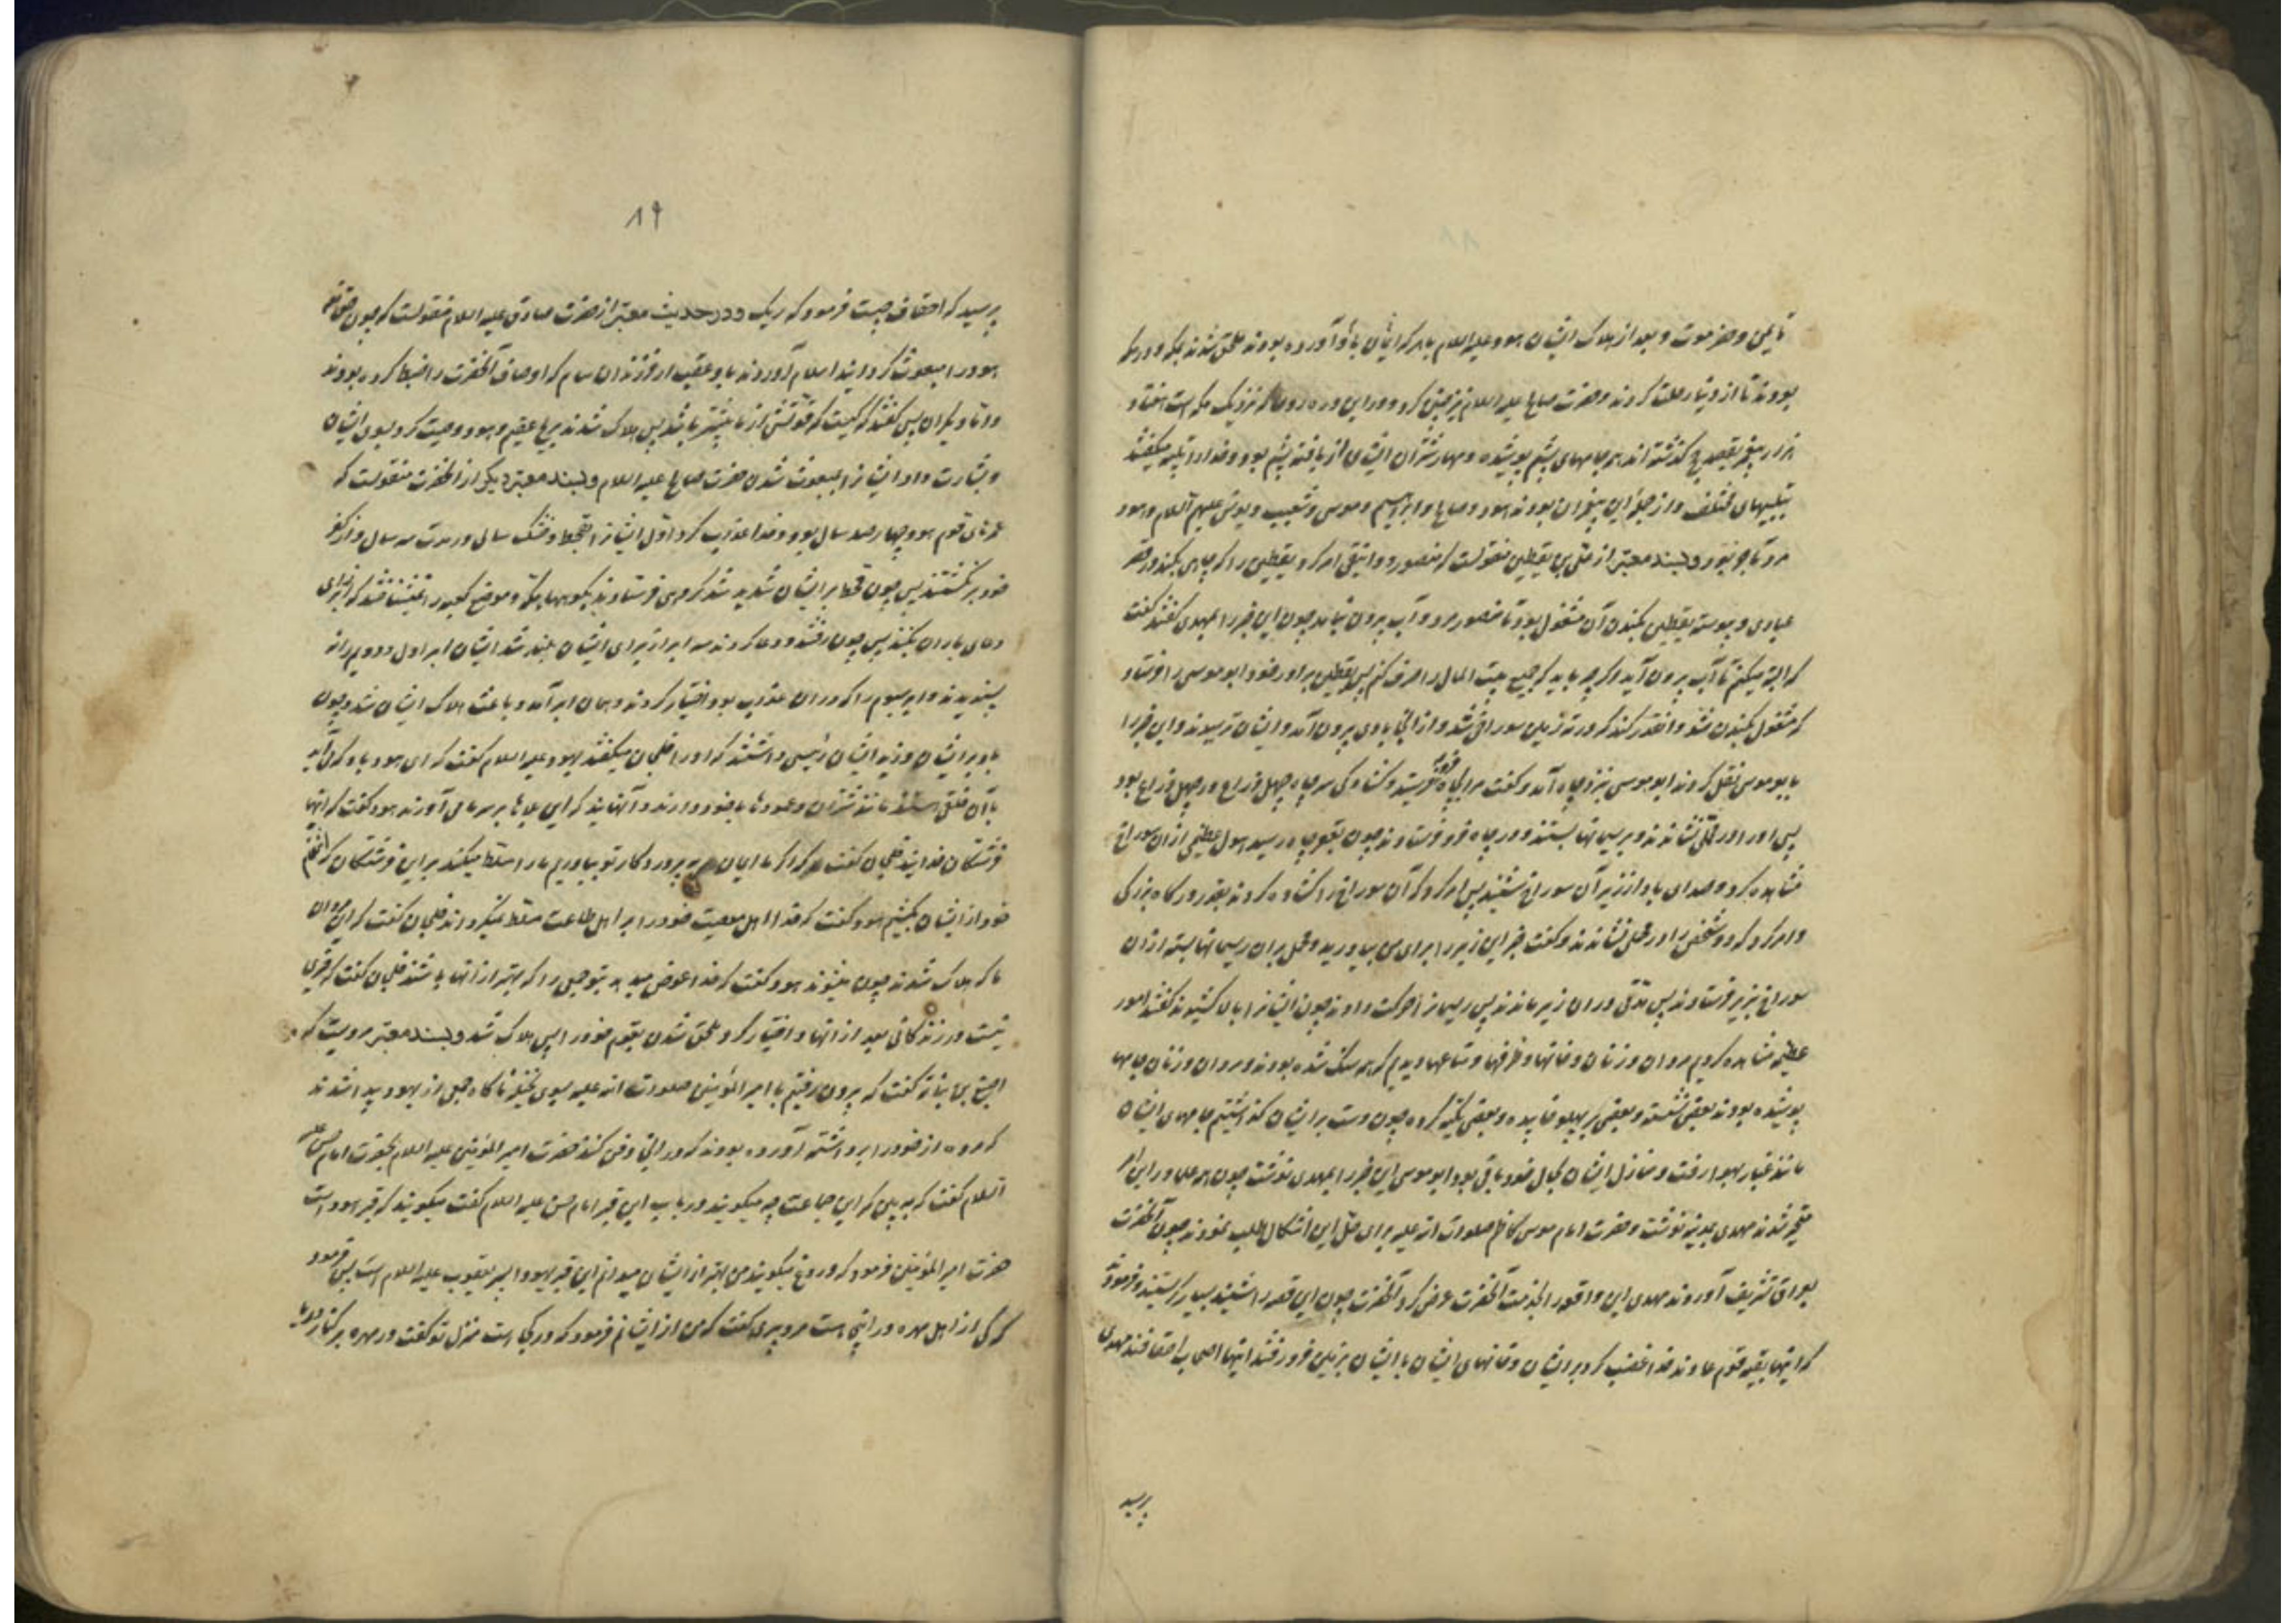 تا یمن و حضرموت و بعد از هلاک ایشان هود علیه السلام با هر که ایمان باو آورده بودند ملحق شدند بمکه و در مکه
بودند تا از دنیا رحلت کردند و حضرت صالح علیه السلام نیز چنین کرد و در این دره روحا که نزدیک مکه است هفتاد
هزار پیغمبر بقصد حج گذشته اند همه جامهای پشم پوشیده و مهار شتران ایشان از بافته پشم بود و خدا را تلبیه میگفتند
تلبیهای مختلف و از جمله این پیغمبران بودند هود و صالح و ابراهیم و موسی و شعیب و یونس علیهم السلام و هود
مرد تاجر بود و بسند معتبر از علی بن یقطین منقولست که منصور دوانیقی امر کرد یقطین را که چاهی بکند در قصر
عبادی و پیوسته یقطین بکندن آن مشغول بود تا منصور مرد و آب بیرون نیامد چون این خبر را بمهدی گفتند گفت
که البته میکنم تا آب بیرون آید و اگر چه باید که جمیع بیت المال را صرف کنم پس یقطین برادر خود ابو موسی را فرستاد
که مشغول بکندن شد و انقدر کندند که در ته زمین سوراخی شد و از آنجا بادی بیرون آمد و ایشان ترسیدند و این خبر را
بابو موسی نقل کردند ابو موسی بنزد چاه آمد و گفت مرا بچاه فرو فرستید و گشادگی سر چاه چهل ذراع در چهل ذراع بود
پس او را در محملی نشاندند و بریسمانها بستند و در چاه فرو فرستادند چون بقعر چاه رسید هول عظیمی از آن سوراخ
مشاهده کرد و صدای باد از زیر آن سوراخ شنید پس امر کرد که آن سوراخ را گشاده کردند بقدر درگاه بزرگی
و امر کرد که دو شخص را در محمل نشاندند و گفت خبر این زیر را برای من بیاورید و محمل بر آن ریسمانها بسته از آن
سوراخ بزیر فرستادند پس مدتی در آن زیر ماندند پس ریسمان را حرکت دادند چون ایشان را بالا کشیدند گفتند امور
عظیمه مشاهده کردیم مردان و زنان و خانها و ظرفها و متاعها دیدیم که همه سنگ شده بودند و مردان و زنان جامها
پوشیده بودند بعضی نشسته و بعضی بر پهلو خوابیده و بعضی تکیه کرده چون دست بر ایشان گذاشتیم جامهای ایشان
مانند غبار بهوا رفت و منازل ایشان بحال خود باقی بود ابو موسی این خبر را بمهدی نوشت چون همه علما در این امر
متحیر شدند مهدی بمدینه نوشت و حضرت امام موسی کاظم صلوات الله علیه برای حل این اشکال طلب نمودند چون آنحضرت
بعراق تشریف آوردند مهدی این واقعه را بخدمت آنحضرت عرض کرد آنحضرت چون این قصه را شنید بسیار گریستند و فرمود
که اینها بقیه قوم عادند خدا غضب کرد بر ایشان و خانهای ایشان با ایشان بزمین فرو رفتند اینها اصحاب احقافند مهدی
پرسید
۱۹
پرسید که احقاف چیست فرمود که ریک و در حدیث معتبر از حضرت صادق علیه السلام منقولست که چون حقتعالی
هود را مبعوث گردانید اسلام آوردند باو عقب از فرزندان سام که اوصاف آنحضرت را ضبط کرده بودند
و اما دیگران پس گفتند که کیست که قوتش از ما بیشتر باشد پس هلاک شدند بریح عقیم و هود وصیت کرد بسوی ایشان
و بشارت داد ایشان را بمبعوث شدن حضرت صالح علیه السلام و بسند معتبر دیگر از آنحضرت منقولست که
عمرهای قوم هود چهار صد سال بود و خدا عذاب کرد اول ایشان را بقحط و خشک سالی در مدت سه سال و از کفر
خود بر نگشتند پس چون قحط بر ایشان شدید شد گروهی فرستادند بکوههای مکه و موضع کعبه را نمیشناختند که از برای
دعای باران بکنند پس چون رفتند و دعا کردند سه ابر از برای ایشان بلند شد ایشان ابر اول و دویم را نه
پسندیدند و ابر سیوم را که در آن عذاب بود اختیار کردند و همان ابر آمد و باعث هلاک ایشان شد و چون
باد بر ایشان وزید ایشان رئیسی داشتند که او را خلجان میگفتند بهود علیه السلام گفت که ای هود باد که می آید
با آن خلقی هستند مانند شتران و عمودها با خود دارند و آنهایند که این بلاها بر سر ما می آورند هود گفت که اینها
فرشتگان خدایند خلجان گفت که اگر ما ایمان به پروردکار تو بیاوریم ما را مسلط میکند بر این فرشتگان که انتقام
خود از ایشان بکشیم هود گفت که خدا اهل معصیت خود را بر اهل طاعت مسلط نمیگرداند خلجان گفت که این مردان
ما که هلاک شدند چون میشوند هود گفت که خدا عوض میدهد بتو جمعی را که بهتر از آنها باشند خلجان گفت که خیری
نیست در زندگانی بعد از آنها و اختیار کرد ملحق شدن بقوم خود را پس هلاک شد و بسند معتبر مرویست که
اصبغ بن نباته گفت که بیرون رفتیم با امیر المؤمنین صلوات الله علیه بسوی نخیله ناگاه جمعی از یهود پیدا شدند
که مرده از خود را برداشته آورده بودند که در آنجا دفن کنند حضرت امیر المؤمنین علیه السلام بحضرت امام حسن علیه
السلام گفت که ببین که این جماعت چه میگویند در باب این قبر امام حسن علیه السلام گفت میگویند که قبر هود است
حضرت امیر المؤمنین فرمود که دروغ میگویند من بهتر از ایشان میدانم این قبر یهودا پسر یعقوب علیه السلام است پس فرمود
که کی از اهل مهره در اینجا است مرد پیری گفت که من از ایشانم فرمود که در کجا است منزل تو گفت در مهره بر کنار دریا